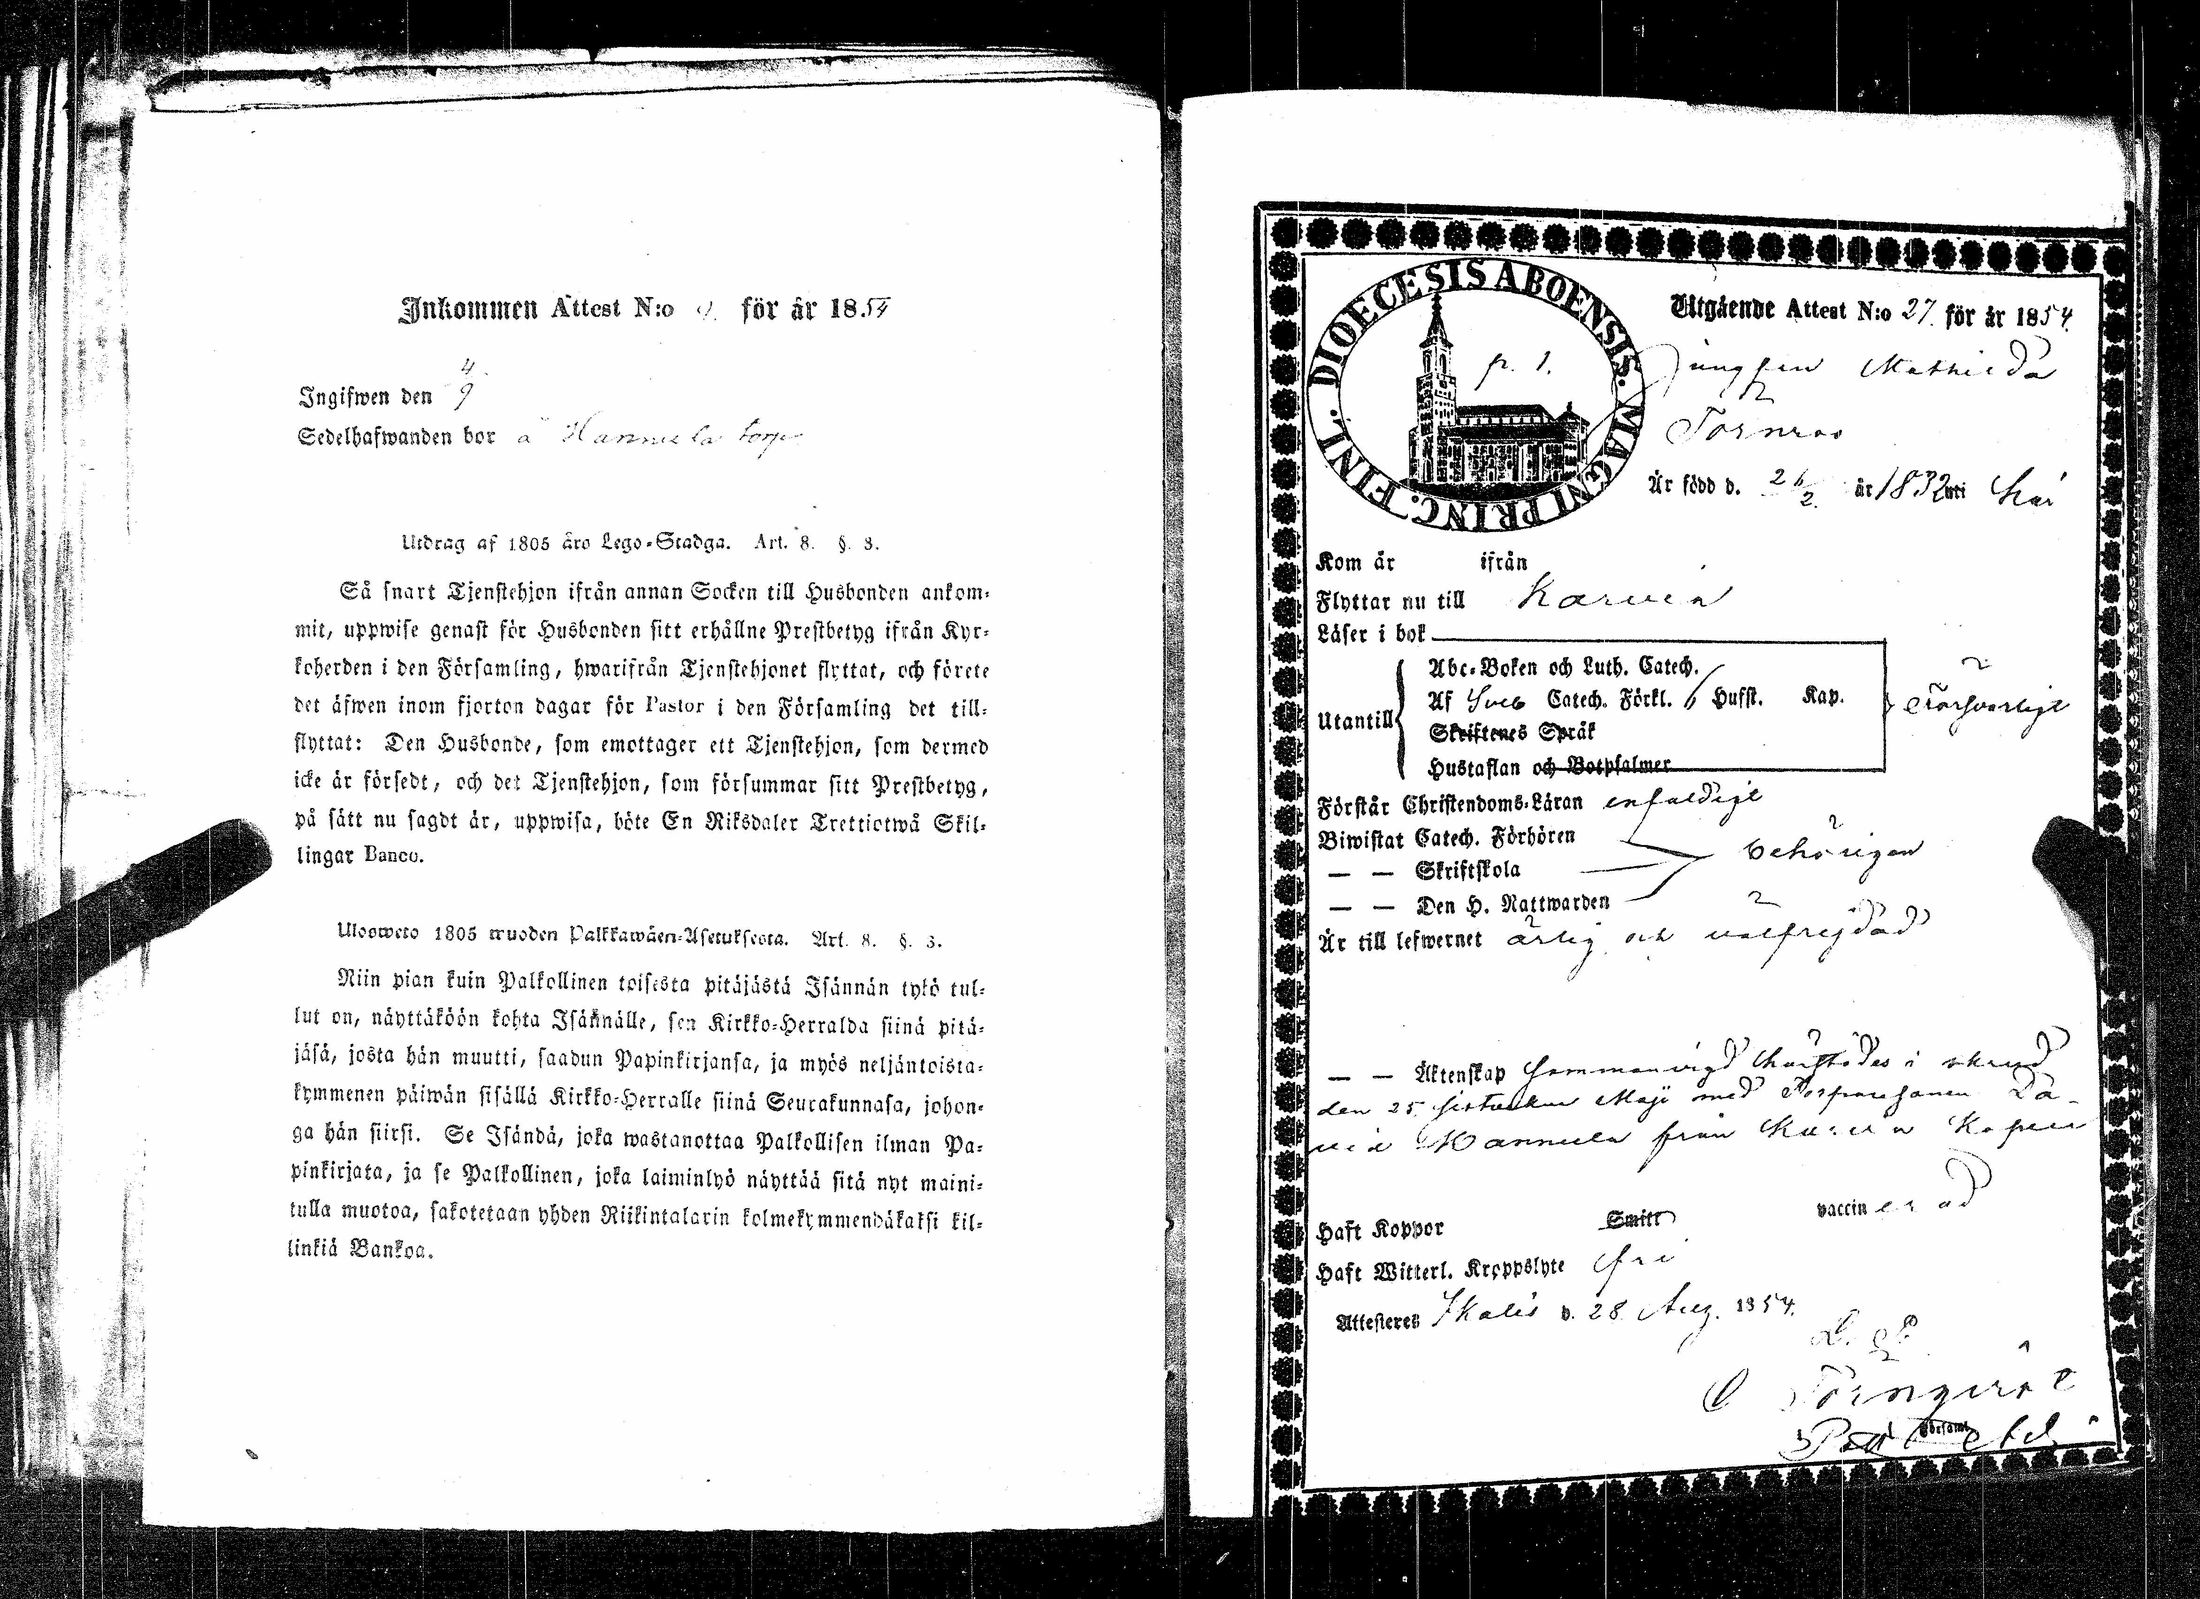 Inkommen Attest N:o 9. för år 1854
Ingifwen den 4/9
Sedelhafwanden bor å Hannula torp
Utdrag af 1805 års Lego-Stadga. Art. 8. §. 3.
Så snart Tjenstehjon ifrån annan Socken till Husbonden ankom-
mit, uppwise genast för Husbonden sitt erhållne Prestbetyg ifrån Kyr-
koherden i den Församling, hwarifrån Tjenstehjonet flyttat, och förete
det äfwen inom fjorton dagar för Pastor i den Församling det till-
flyttat: Den Husbonde, som emottager ett Tjenstehjon, som dermed
icke är försedt, och det Tjenstehjon, som försummar sitt Prestbetyg,
på sätt nu sagdt är, uppwisa, böte En Riksdaler Trettiotwå Skil-
lingar Banco.
Ulosweto 1805 wuoden Palkkawäen-Asetuksesta. Art. 8. §. 3.
Niin pian kuin Palkollinen toisesta pitäjästä Isännän tykö tul-
lut on, näyttäköön kohta Isännälle, sen Kirkko-Herralda siinä pitä-
jäsä, josta hän muutti, saadun Papinkirjansa, ja myös neljäntoista-
kymmenen päiwän sisällä Kirkko-Herralle siinä Seurakunnasa, johon-
ga hän siirsi. Se Isändä, joka wastanottaa Palkollisen ilman Pa-
pinkirjata, ja se Palkollinen, joka laiminlyö näyttää sitä nyt maini-
tulla muotoa, sakotetaan yhden Riikintalarin kolmekymmendäkaksi kil-
linkiä Bankoa.
DIOECESIS ABOENSIS. MAGNI PRINC. FINL.
p. 1.
Utgående Attest N:o 27. för år 1854.
Jungfrun Mathilda
Törnroo
Är född d. 26/2. år 1832 uti här
Kom år ifrån
Flyttar nu till Karvia
Läser i bok
Utantill
Abc-Boken och Luth. Catech.
Af Sveb Catech. Förkl. Husst. Kap.
Skriftenes Språk
Hustaflan och Botpsalmer
Försvarligt
Förstår Christendoms-Läran enfaldigt
Biwistat Catech. Förhören
— — Skriftskola
— — Den H. Nattwarden
behörigen
Är till lefwernet ärlig och välfrejdad
— — Äktenskap Sammanvigd härstädes i
den 25 sistledne Maji med Torparesonen Da-
vid Hannula från Karvia Kapell
Haft Koppor Smitt vaccinerad
Haft Witterl. Kroppslyte fri
Attesteres Ikalis d. 28 Aug. 1854.
C Törnqvist